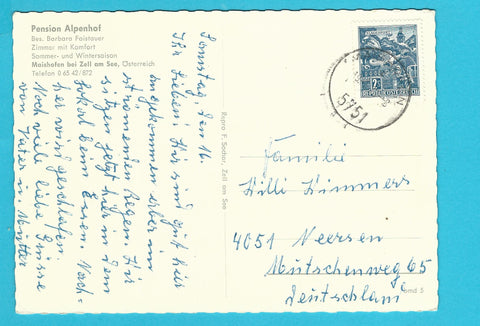 Pension Alpenhof
Bes. Barbara Faistauer
Zimmer mit Komfort
Sommer- und Wintersaison
Maishofen bei Zell am See, Österreich
Telefon 0 65 42/872
Sonntag, den 16.
Ihr Lieben! Wir sind gut hier
angekommen aber im
strömenden Regen. Wir
sitzen jetzt hier in dem
Lokal beim Essen. Nach-
her wird geschlafen.
Noch viele liebe Grüsse
von Vater u. Mutter
Repro F. Sochor, Zell am See
5751
Familie
Willi Kimmers
4051 Neersen
Mutschenweg 65
Deutschland
bmd 5